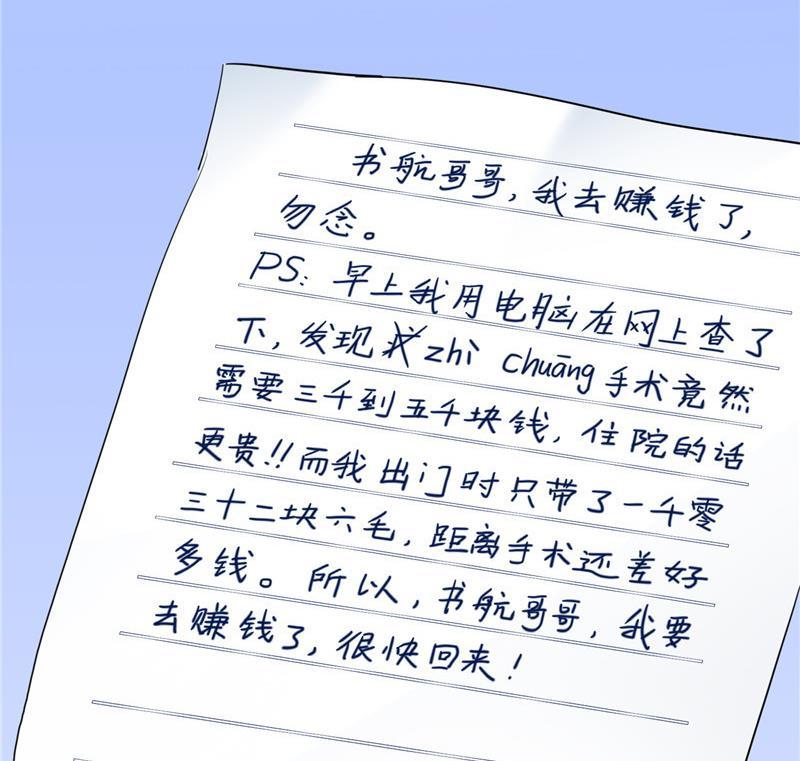 书航哥哥，我去赚钱了，
勿念。
PS：早上我用电脑在网上查了
下，发现zhì chuāng手术竟然
需要三千到五千块钱，住院的话
更贵!!而我出门时只带了一千零
三十二块六毛，距离手术还差好
多钱。所以，书航哥哥，我要
去赚钱了，很快回来！